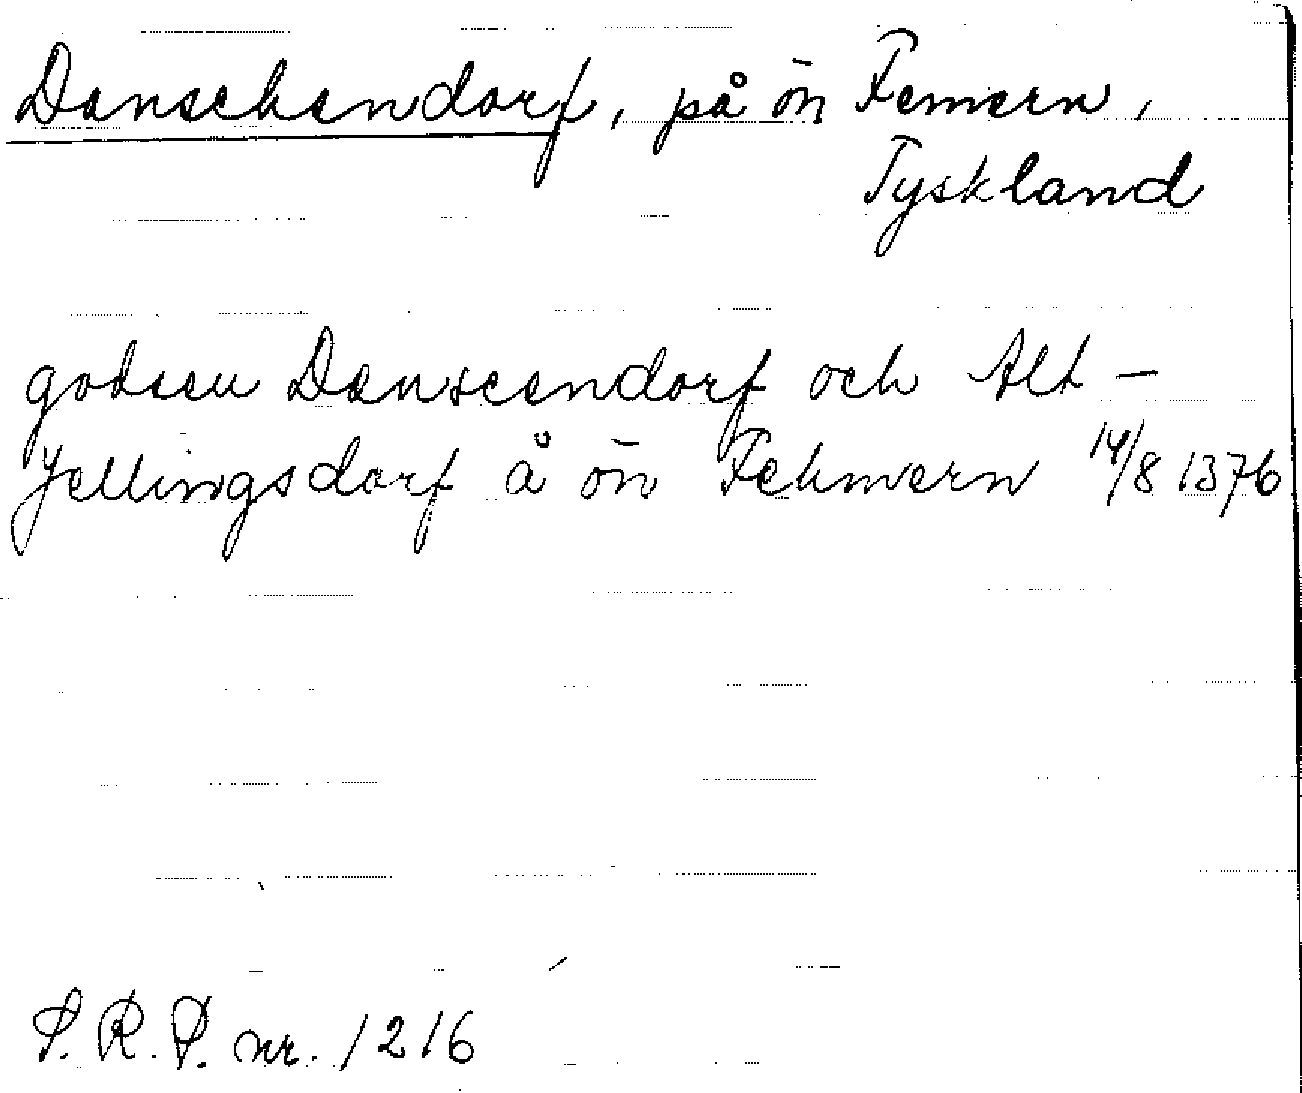 Danschendorf, på ön Femern,
Tyskland
godsen Danscendorf och Alt-
Jellingsdorf å ön Fehmern 14/8 1376
S. R. P. nr. 1216